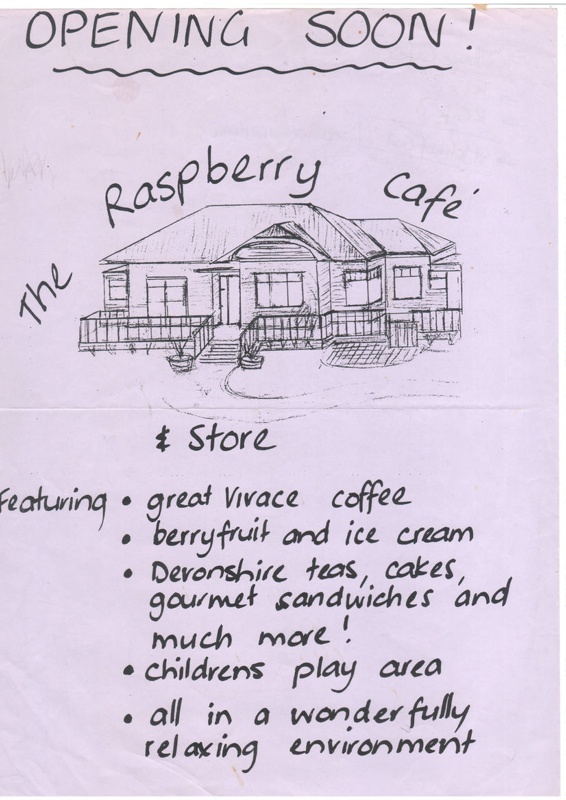 OPENING SOON!
The Raspberry Café
& Store
Featuring • great Vivace coffee
• berryfruit and ice cream
• Devonshire teas, cakes,
gourmet sandwiches and
much more!
• childrens play area
• all in a wonderfully
relaxing environment